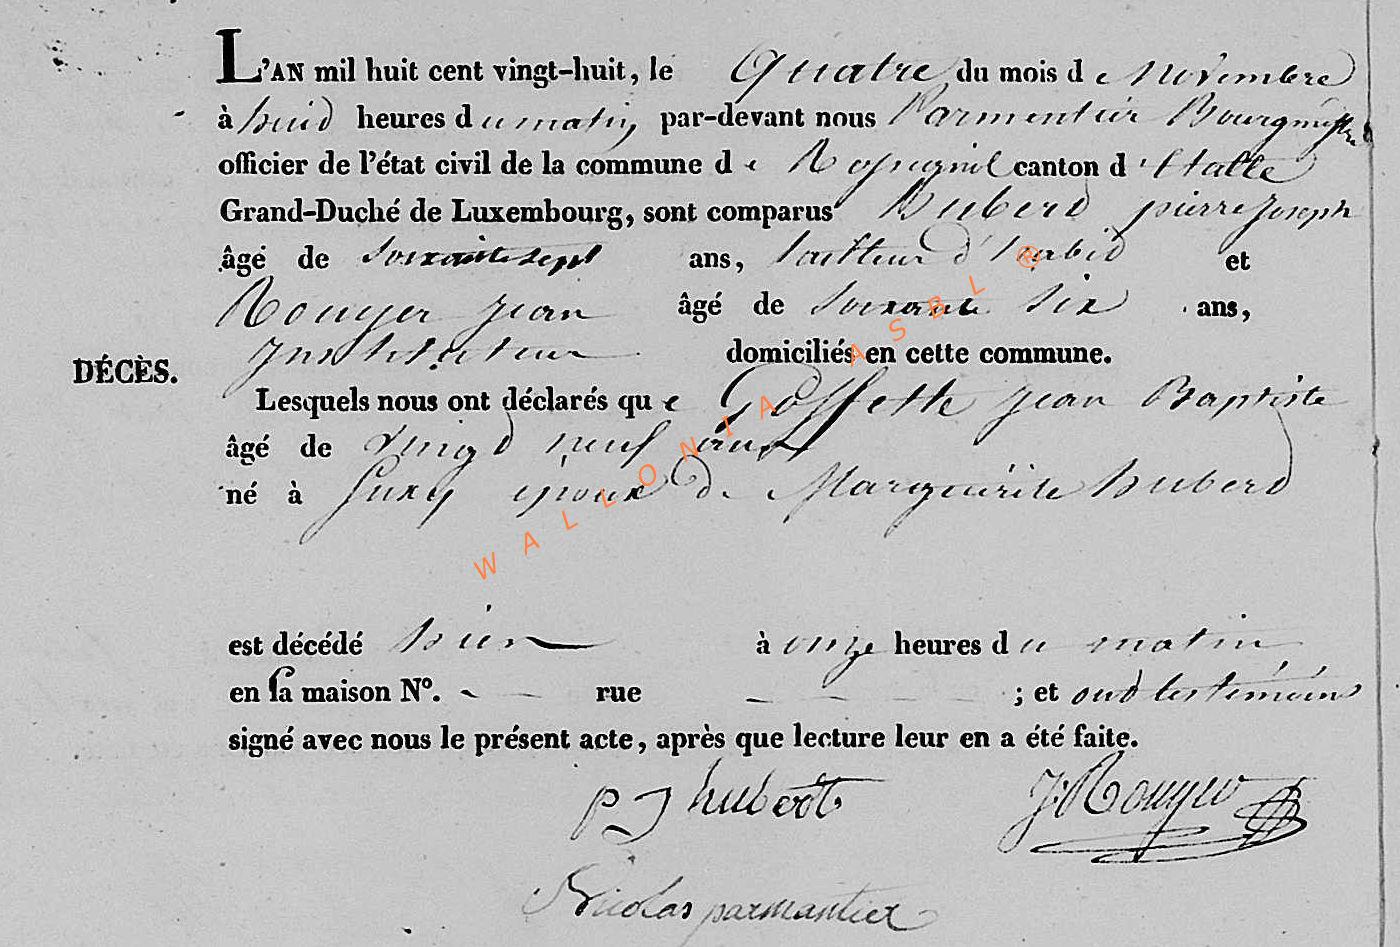 L'AN mil huit cent vingt-huit, le Quatre du mois de Novembre
à huid heures du matin par-devant nous Parmentier Bourgmestre
officier de l'état civil de la commune de Rossignol canton d'Etalle
Grand-Duché de Luxembourg, sont comparus Huberd pierre Joseph
âgé de soixante sept ans, tailleur d'habid et
Rouyer jean âgé de soixante six ans,
Institeteur domiciliés en cette commune.
DÉCÈS.
Lesquels nous ont déclarés que Goffette jean Baptiste
âgé de vingd neuf ans
né à Suxy époux de Marguerite huberd
est décédé hier à onze heures du matin
en sa maison N°. - - rue - - - - - ; et ond les témoins
signé avec nous le présent acte, après que lecture leur en a été faite.
P J hubert J. Rouyer
Nicolas parmantier
WALLONIA ASBL ®